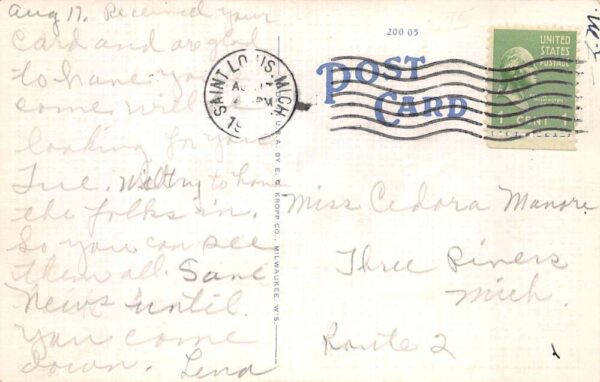 Aug 17. Received your
card and are glad
to have you
come will
looking for you
Tue. Will try to have
the folks in.
So you can see
them all. Save
News until
you come
down. Lena
200 05
POST
CARD
SAINT LOUIS, MICH
17
PM
19
UNITED
STATES
POSTAGE
WASHINGTON
1 CENT 1
U.S.A. BY E. C. KROPP CO., MILWAUKEE, WIS.
Miss Cedora Manore
Three Rivers
Mich.
Route 2